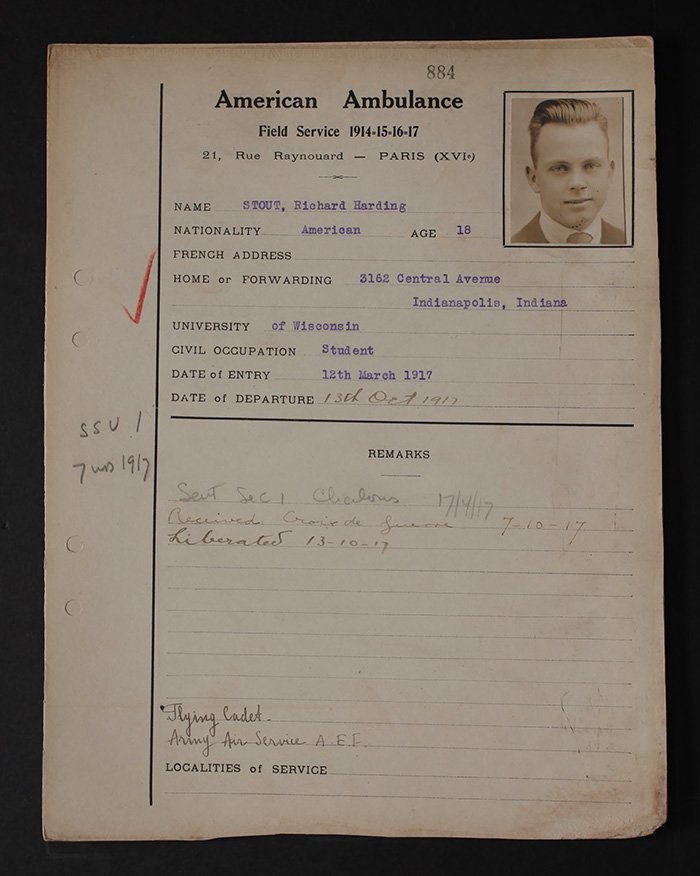 884
American Ambulance
Field Service 1914-15-16-17
21, Rue Raynouard — PARIS (XVIe)
NAME STOUT, Richard Harding
NATIONALITY American AGE 18
FRENCH ADDRESS
HOME or FORWARDING 3162 Central Avenue
Indianapolis, Indiana
UNIVERSITY of Wisconsin
CIVIL OCCUPATION Student
DATE of ENTRY 12th March 1917
DATE of DEPARTURE 13th Oct 1917
SSU 1
1917
REMARKS
Sent Sec 1 Chalons 17/4/17
Received Croix de Guerre 7-10-17
Liberated 13-10-17
Flying Cadet.
Army Air Service A.E.F.
LOCALITIES of SERVICE